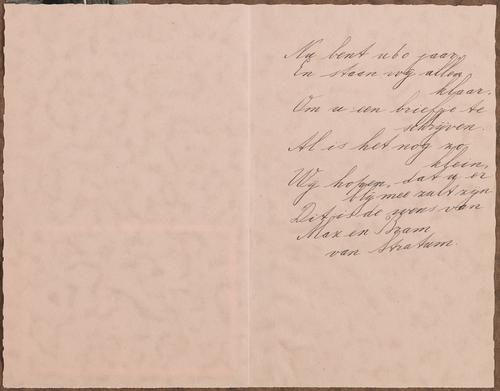 Nu bent u 60 jaar,
En staan wij allen
klaar,
Om u een briefje te
schrijven.
Al is het nog zo
klein,
Wij hopen, dat u er
blij mee zult zijn
Dit is de wens van
Max en Bram
van Stratum.